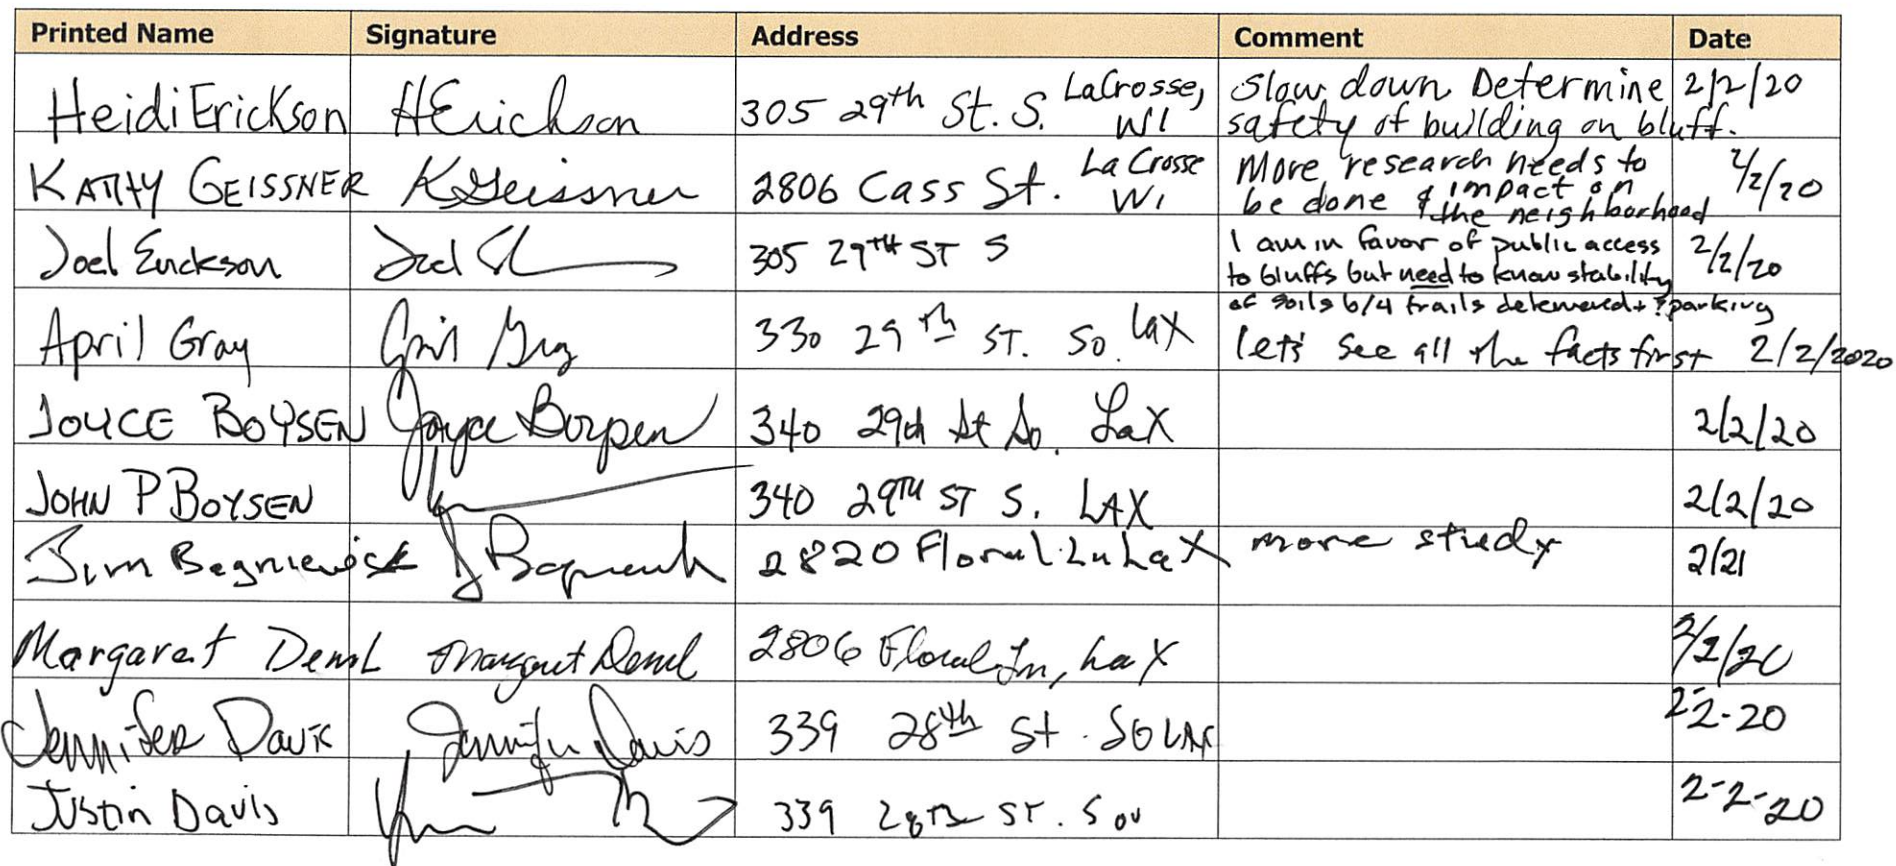 Printed Name Signature Address Comment Date
Heidi Erickson HErickson 305 29th St. S. LaCrosse, WI Slow down Determine 2/2/20
safety of building on bluff.
KATHY GEISSNER KGeissner 2806 Cass St. La Crosse WI More research needs to 2/2/20
be done & impact on
the neighborhood
Joel Erickson 305 29TH ST S I am in favor of public access 2/2/20
to bluffs but need to know stability
of soils b/4 trails + ? parking
April Gray April Gray 330 29th ST. So. LaX let's see all the facts first 2/2/2020
JOYCE BOYSEN Joyce Boysen 340 29th St So. LaX 2/2/20
JOHN P BOYSEN 340 29TH ST S. LAX 2/2/20
Jim 2820 Floral Ln LaX more study 2/21
Margaret Deml Margaret Deml 2806 Floral Ln, LaX 2/2/20
Jennifer Davis Jennifer Davis 339 28th St. SO LAX 2-2-20
Justin Davis 339 28th ST. Sou 2-2-20